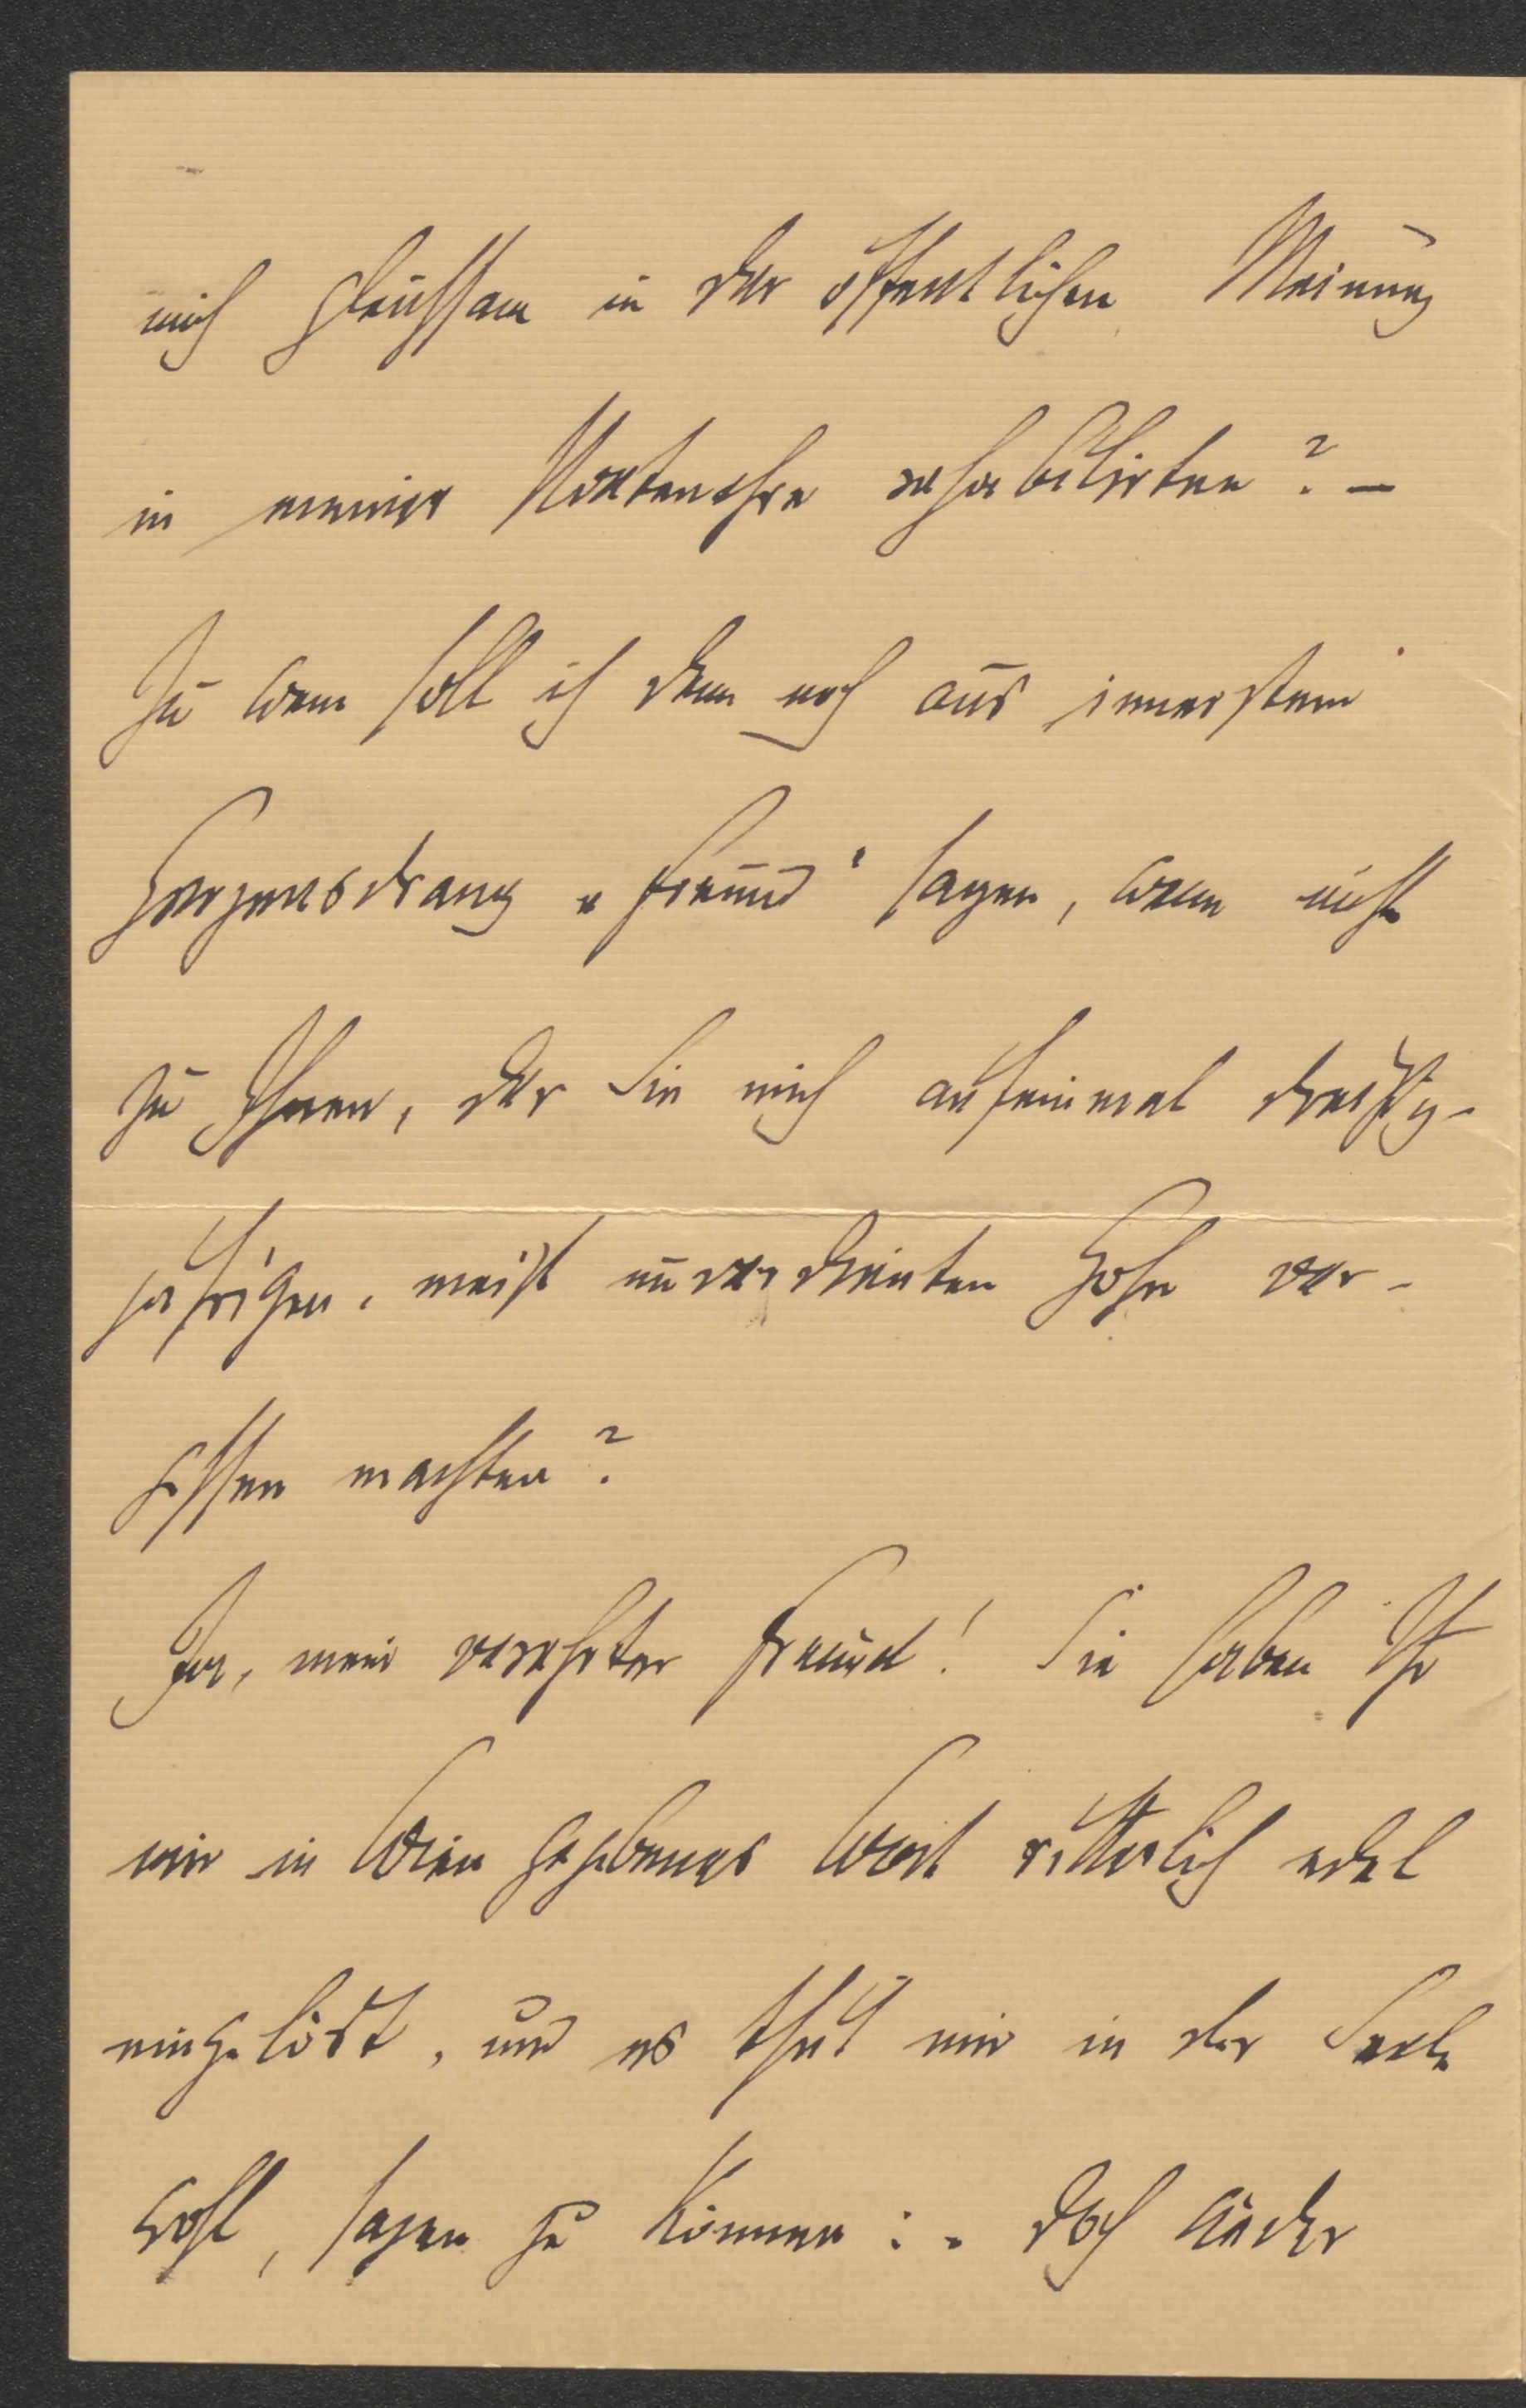 mich gleichsam in der öffentlichen Meinung
in meiner Poetenehre rehabilitirten? –
Zu wem soll ich denn noch aus innerstem
Herzensdrang „Freund“ sagen, wenn nicht
zu Ihnen, der Sie mich auf einmal dreißig-
jährigen, meist unverdienten Hohn ver-
gessen machten?
Ja, mein verehrter Freund! Sie haben Ihr
mir in Wien gegebenes Wort ritterlich edel
eingelöst, und es thut mir in der Seele
wohl, sagen zu können: „ doch